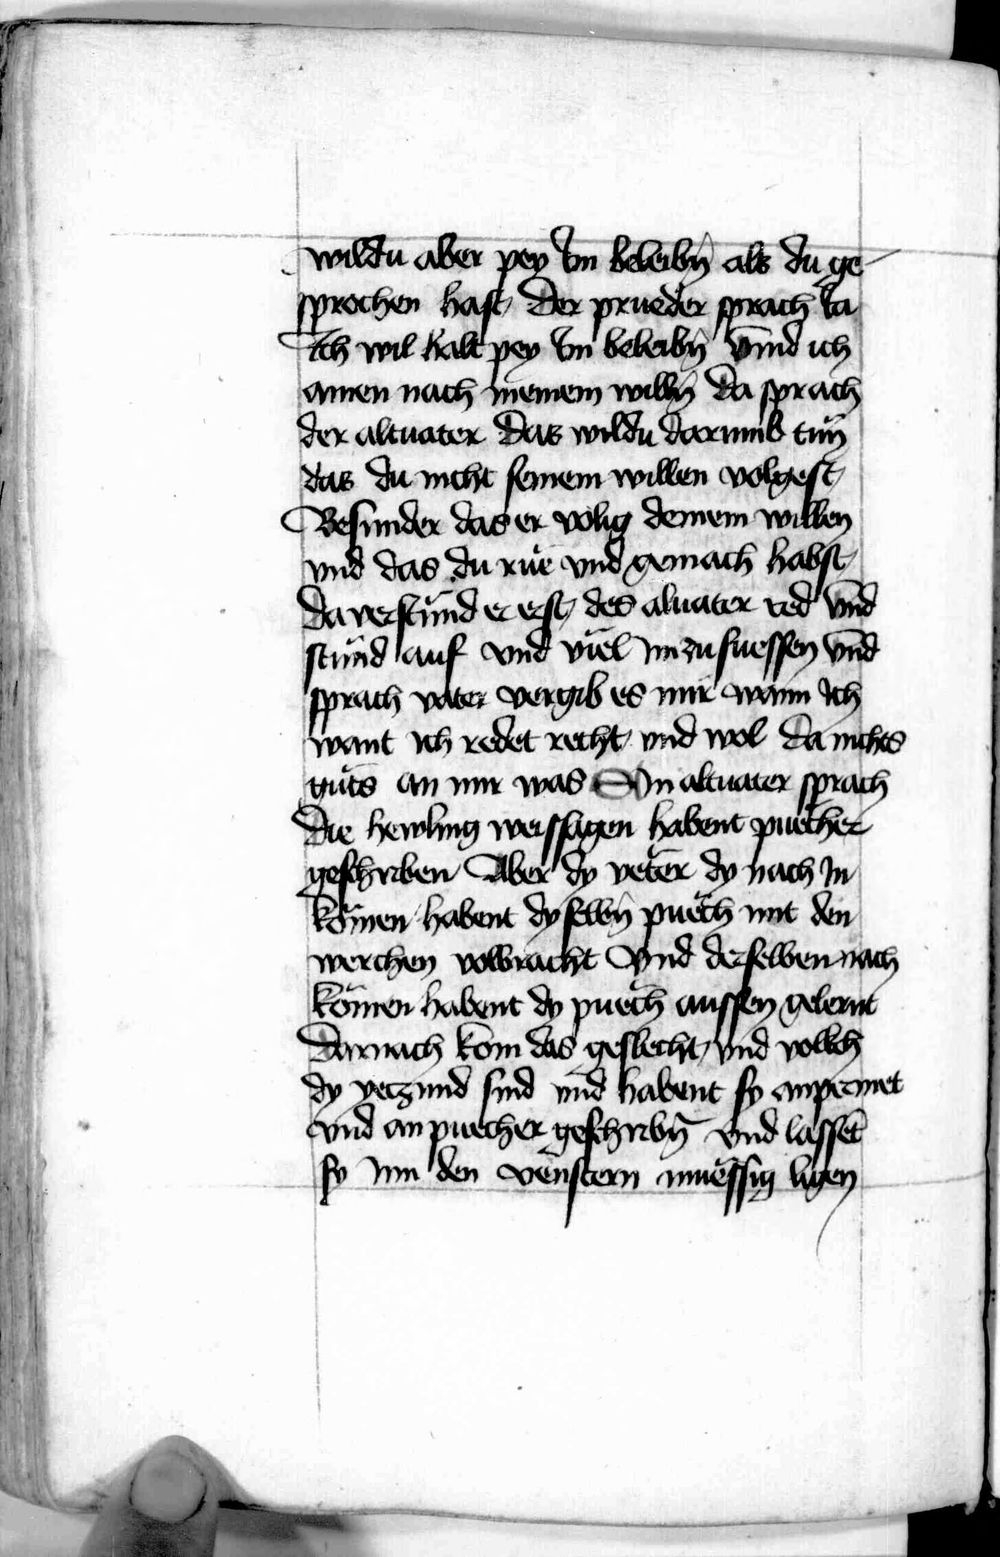 wildu aber pey Im beleibn̄ als du ge
sprochen hast Der prueder sprach Ia
Ich wil halt pey Im beleibn̄ Vnd ich
ainen nach meinem willn̄ Da sprach
der altuater Das wildu darumb tun
das du nicht seinem willen volgest
Besunder das er volig deinem willen
vnd das du rue vnd gemach habst
Da verstund er erst des aluater red vnd
stund auf vnd viel im zu fuessen vnd
sprach vater vergib es mir wann Ich
want ich redet recht vnd wol Da nichts
guts an mir was Ein altuater sprach
Die hewling weissagen habent puecher
geschriben Aber dy veter dy nach In
komen habent dy selbn̄ puech mit den
werchen volbracht Vnd derselben nach
komen habent dy puech aussen gelernt
Darnach kom das geslecht vnd volkch
dy yeczund sind vnd habent sy anpermet
vnd an puecher geschribn̄ vnd lassēt
sy Inn den venstern muessig ligen